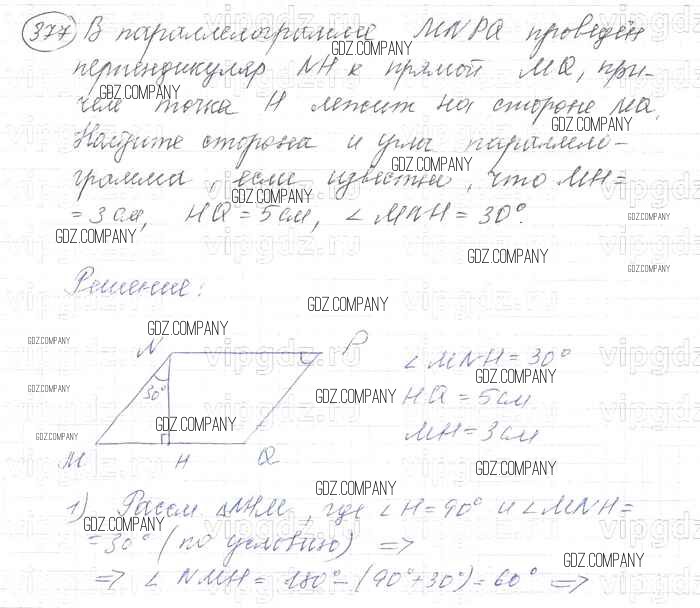 377 В параллелограмме MNPQ проведён
перпендикуляр NH к прямой MQ, при-
чем точка H лежит на стороне MQ.
Найдите стороны и углы параллело-
грамма, если известно, что MH=
= 3 см, HQ = 5 см, ∠ MNH = 30°.
Решение:
N P
30°
M H Q
∠ MNH = 30°
HQ = 5 см
MH = 3 см
1) Рассм. ΔNHM, где ∠ H = 90° и ∠ MNH =
= 30° (по условию) =>
=> ∠ NMH = 180° - (90° + 30°) = 60° =>
GDZ.COMPANY
vipgdz.ru